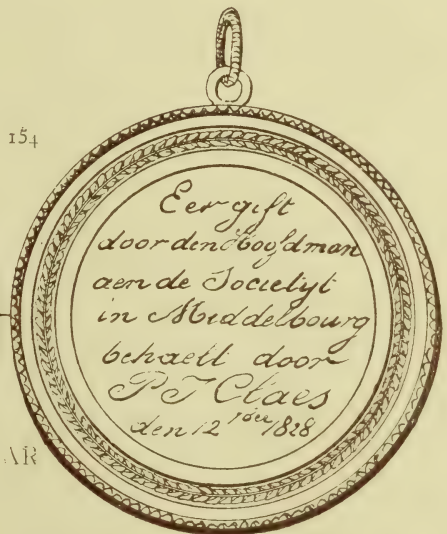 154
Eer gift
door den Hoofdman
aen de Societyt
in Middelbourg
behaelt door
P J Claes
den 12 1828
AR